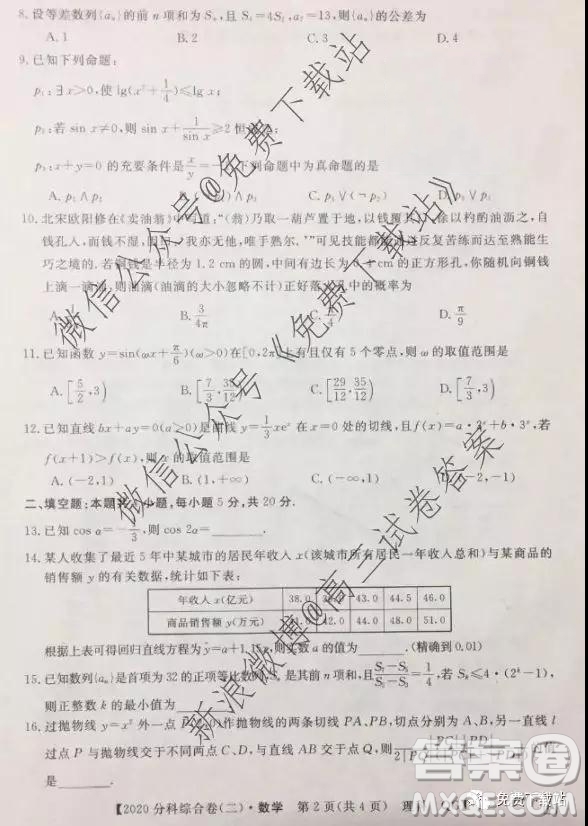 8.设等差数列{aₙ}的前n项和为Sₙ,且S₄=4S₂,a₇=13,则{aₙ}的公差为
A.1 B.2 C.3 D.4
9.已知下列命题:
p₁:∃x>0,使lg(x²+1/4)≤lgx;
p₂:若sin x≠0,则sin x+1/sin x≥2恒
p₃:x+y=0的充要条件是x/y= 下列命题中为真命题的是
A.p₁∧p₂ C. ∧p₃ D.p₂∨(¬p₃)
10.北宋欧阳修在《卖油翁》中 道:“(翁)乃取一葫芦置于地,以钱覆其 徐以杓酌油沥之,自
钱孔入,而钱不湿,因曰:‘我亦无他,唯手熟尔.’”可见技能都 反复苦练而达至熟能生
巧之境的.若铜钱是半径为1.2 cm的圆,中间有边长为 cm的正方形孔,你随机向铜钱
上滴一滴油,则油滴(油滴的大小忽略不计)正好落 孔中的概率为
A. B.3/4π C. D.π/9
11.已知函数y=sin(ωx+π/6)(ω>0)在[0,2π]上有且仅有5个零点,则ω的取值范围是
A.[5/2,3) B.[7/3,35/12) C.[29/12,35/12) D.[7/3,3)
12.已知直线bx+ay=0(a>0)是曲线y=1/3xeˣ在x=0处的切线,且f(x)=a·3ˣ+b·3 ,若
f(x+1)>f(x),则x的取值范围是
A.(-2,1) B.(-1,1) C.(-∞, D. -2,-1)
二、填空题:本题共 小题,每小题5分,共20分.
13.已知cos α=- /3,则cos 2α=______.
14.某人收集了最近5年中某城市的居民年收入x(该城市所有居民一年收入总和)与某商品的
销售额y的有关数据,统计如下表:
年收入x(亿元) 38.0 43.0 44.5 46.0
商品销售额y(万元) 42.0 44.0 48.0 51.0
根据上表可得回归直线方程为y=a+1.15x,则实数a的值为______.(精确到0.01)
15.已知数列{aₙ}是首项为32的正项等比数列,Sₙ是其前n项和,且 =1/4,若Sₖ≤4·(2ᵏ-1),
则正整数k的最小值为______
16.过抛物线y=x²外一点P 作抛物线的两条切线PA,PB,切点分别为A、B,另一直线l
过点P与抛物线交于不同两点C、D,与直线AB交于点Q,则
是______.
【2020分科综合卷(二)·数学 第2页(共4页) 理
微信公众号@免费下载站
微信公众号《免费下载站》
新浪微博@高三试卷答案
免费下载站